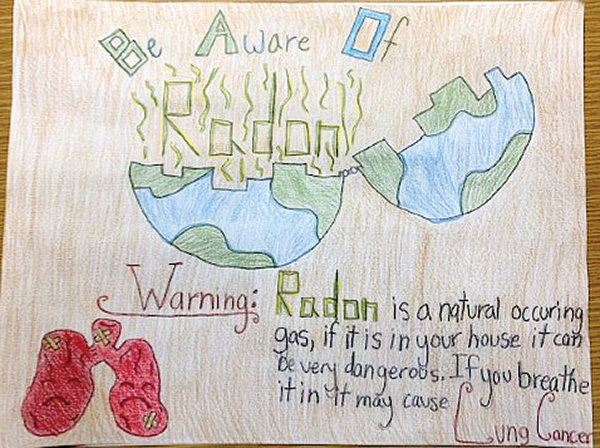 Be Aware Of
Radon
Warning: Radon is a natural occuring
gas, if it is in your house it can
be very dangerous. If you breathe
it in it may cause Lung Cancer